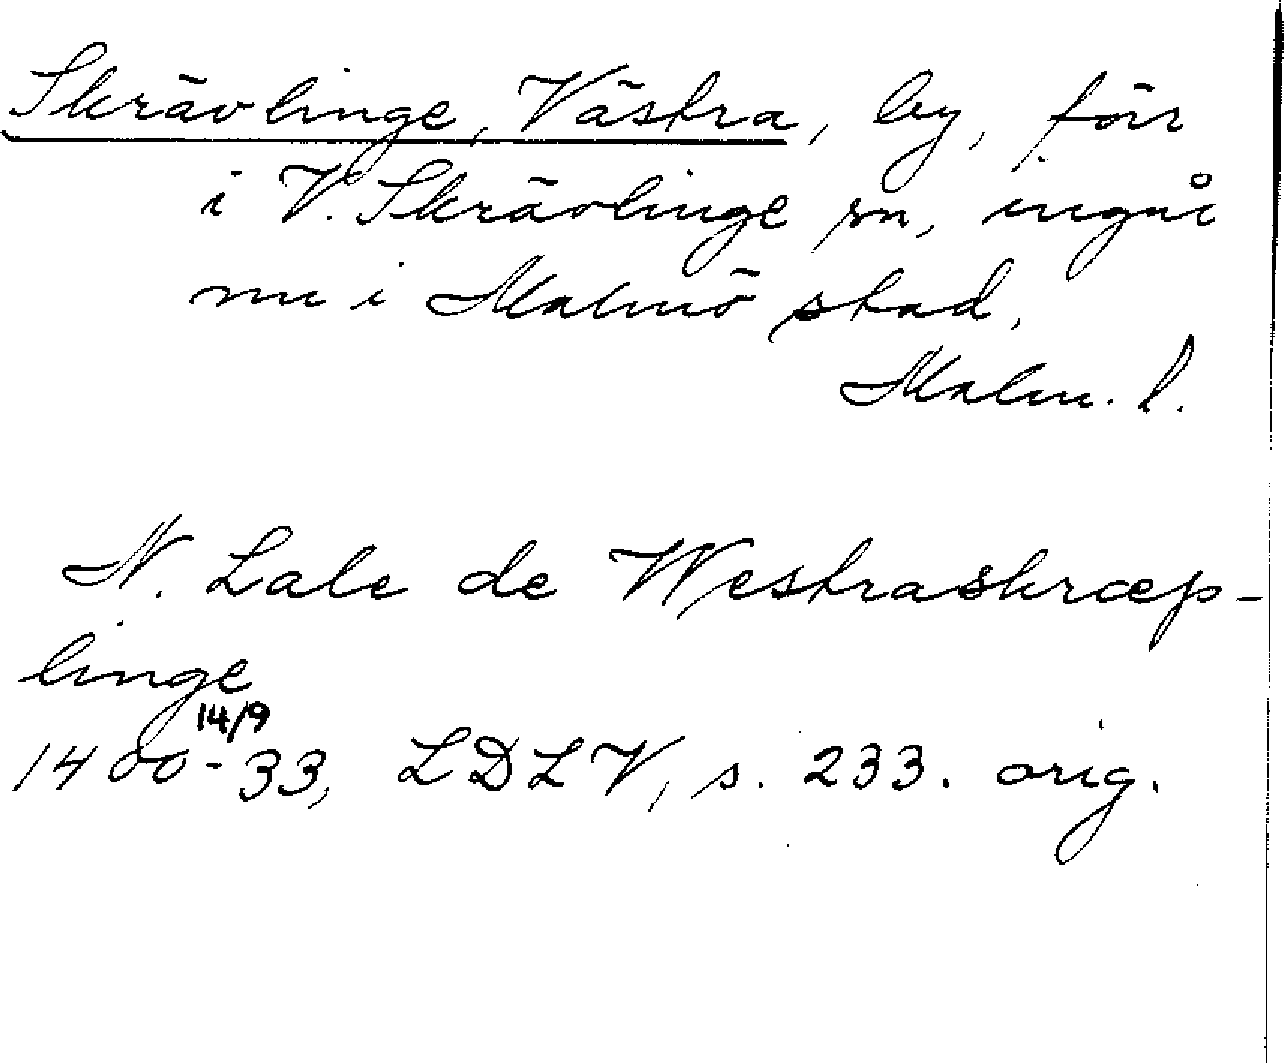 Skrävlinge, Västra, by, förr
i V. Skrävlinge sn, ingår
nu i Malmö stad,
Malm. l.
N. Lale de Westraskræp-
linge
14/9
1400-33, LDLV, s. 233. orig.